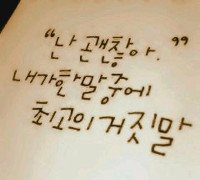 “난 괜찮아.”
내가 한 말 중에
최고의 거짓말